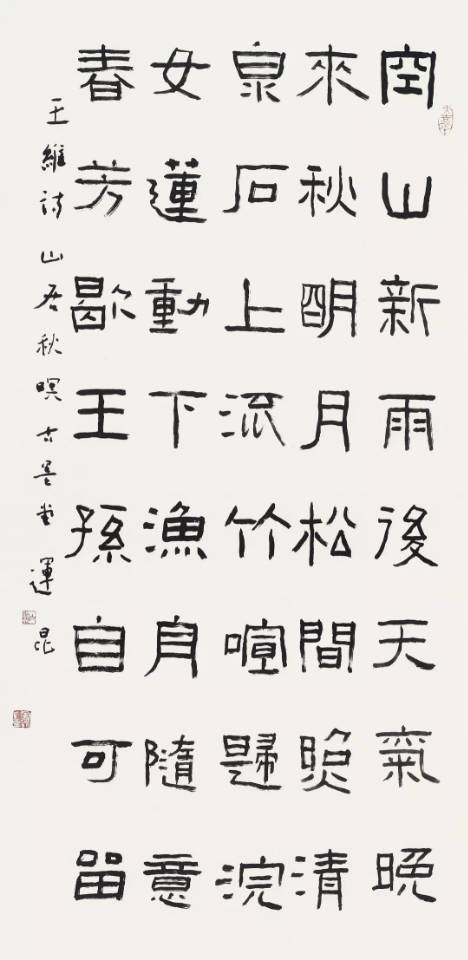 空山新雨後天氣晚
來秋明月松間照清
泉石上流竹喧歸浣
女蓮動下漁舟隨意
春芳歇王孫自可留
王維詩山居秋暝古墨堂運昆